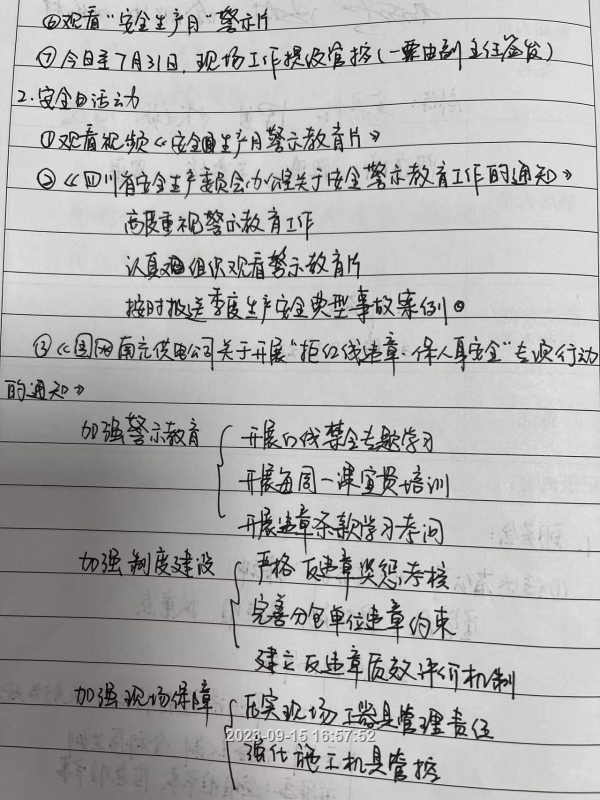 ⑥观看“安全生产月”警示片
⑦今日至7月31日,现场工作提级管控(一票由副主任签发)
2.安全日活动
①观看视频《安全生产月警示教育片》
②《四川省安全生产委员会办公室关于安全警示教育工作的通知》
高度重视警示教育工作
认真组织观看警示教育片
按时报送季度生产安全典型事故案例。
③《国网南充供电公司关于开展“拒红线违章·保人身安全”专项行动
的通知》
加强警示教育 开展红线禁令专题学习
开展每周一课宣贯培训
开展违章条款学习考问
加强制度建设 严格反违章奖惩考核
完善分包单位违章约束
建立反违章质效评价机制
加强现场保障 压实现场工器具管理责任
2023-09-15 16:57:52
强化施工机具管控